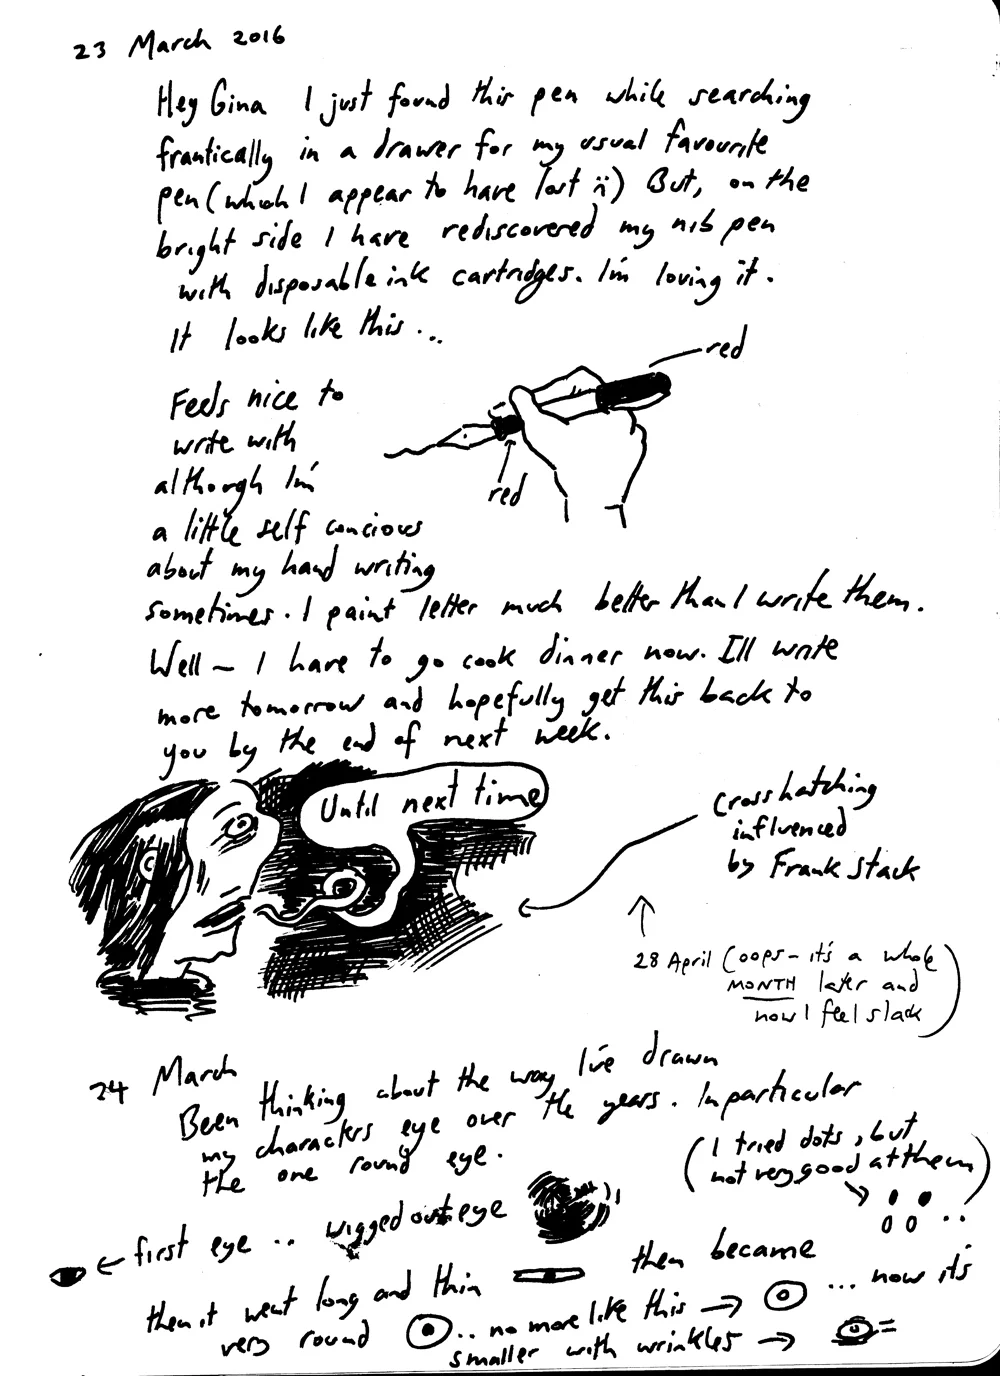 23 March 2016
Hey Gina I just found this pen while searching
frantically in a drawer for my usual favourite
pen (which I appear to have lost :() But, on the
bright side I have rediscovered my nib pen
with disposable ink cartridges. I'm loving it.
It looks like this...
red
red
Feels nice to
write with
although I'm
a little self concious
about my hand writing
sometimes. I paint letter much better than I write them.
Well ~ I have to go cook dinner now. I'll write
more tomorrow and hopefully get this back to
you by the end of next week.
Until next time
Cross hatching
influenced
by Frank Stack
28 April (oops - it's a whole
MONTH later and
now I feel slack)
24 March
Been thinking about the way I've drawn
my characters eye over the years. In particular
the one round eye.
(I tried dots, but
not very good at them)
← first eye .. wigged out eye
then it went long and thin
then became
very round
.. no more like this →
... now it's
smaller with wrinkles →